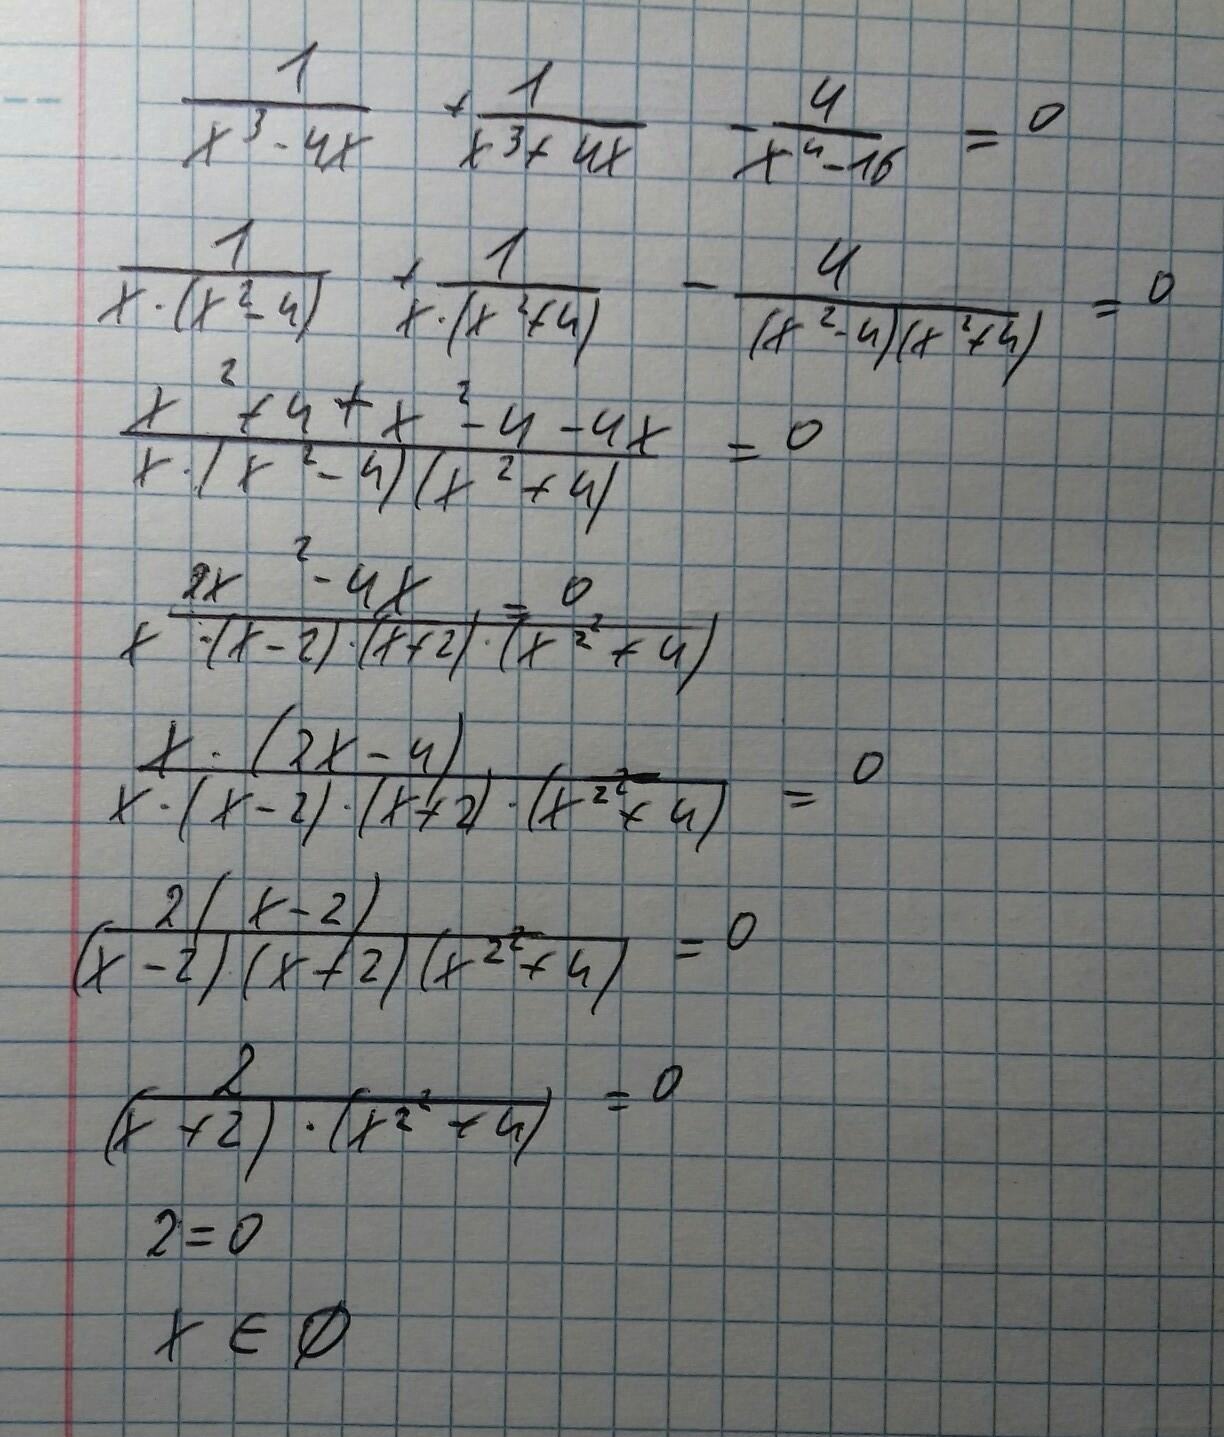 1/(x³-4x) + 1/(x³+4x) - 4/(x⁴-16) = 0
1/(x·(x²-4)) + 1/(x·(x²+4)) - 4/((x²-4)(x²+4)) = 0
(x²+4+x²-4-4x)/(x·(x²-4)(x²+4)) = 0
(2x²-4x)/(x·(x-2)·(x+2)·(x²+4)) = 0
(x·(2x-4))/(x·(x-2)·(x+2)·(x²+4)) = 0
(2(x-2))/((x-2)·(x+2)(x²+4)) = 0
2/((x+2)·(x²+4)) = 0
2=0
x ∈ ∅